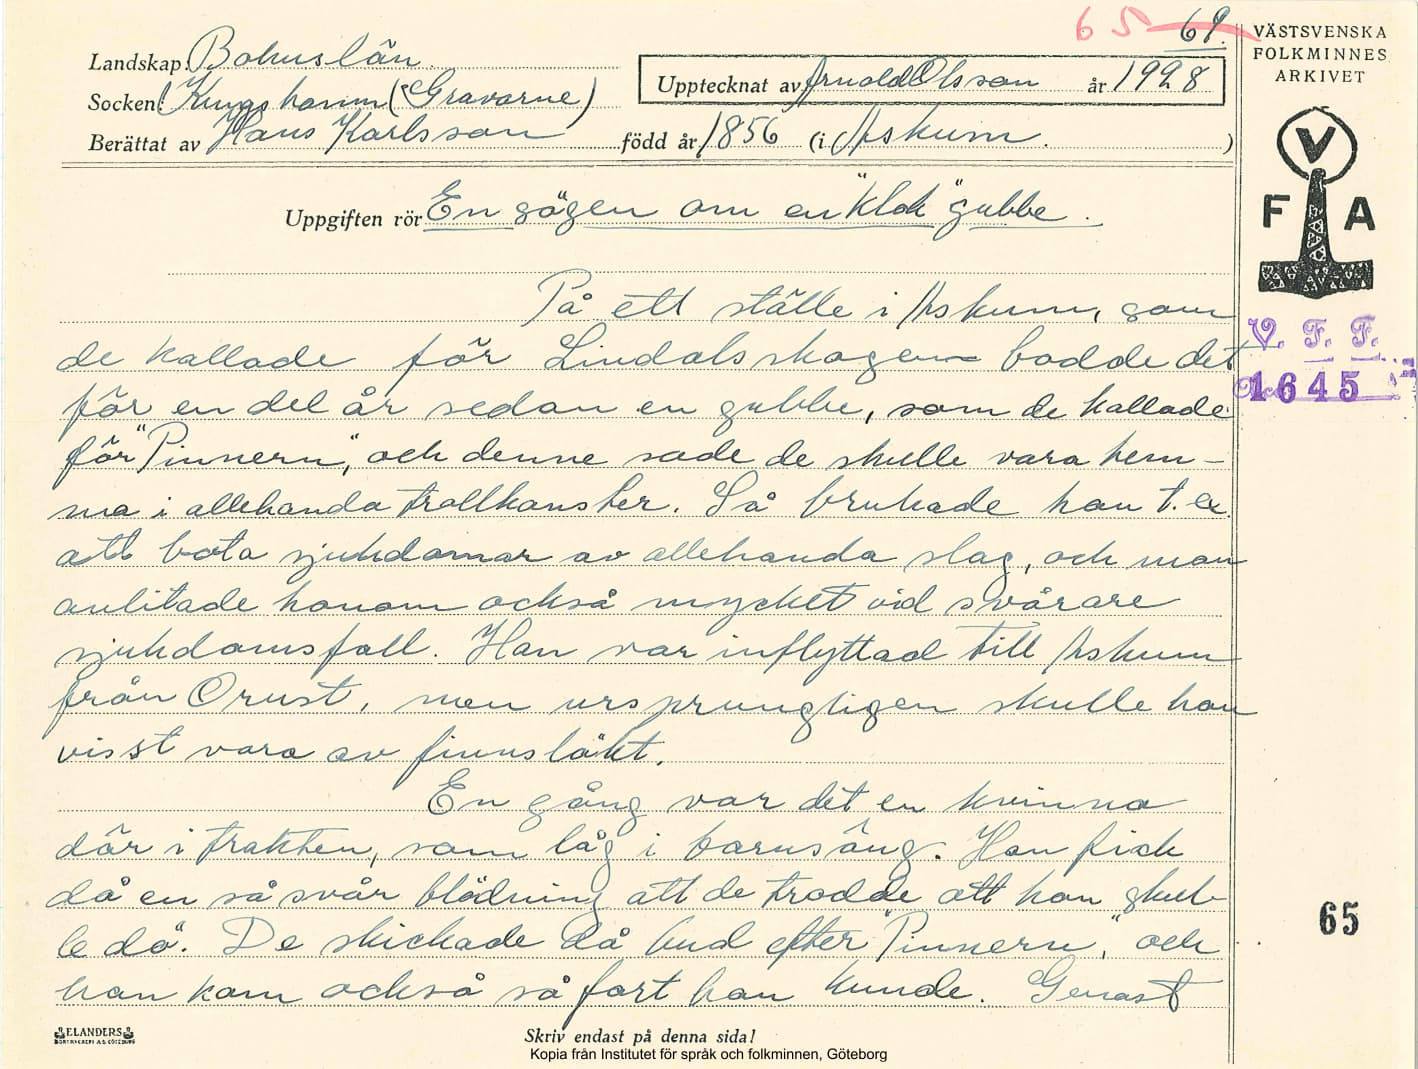 65 69.
VÄSTSVENSKA
FOLKMINNES
ARKIVET
Landskap: Bohuslän
Upptecknat av Arnold Olsson år 1928
Socken: Kungshamn (Gravarne)
Berättat av Hans Karlsson född år 1856 (i Askum. )
Uppgiften rör En sägen om en "klok" gubbe.
V
F A
På ett ställe i Askum, som
de kallade för Lindalsskogen bodde det
för en del år sedan en gubbe, som de kallade
för "Pinnern", och denne sade de skulle vara hem-
ma i allehanda trollkonster. Så brukade han t. ex.
att bota sjukdomar av allehanda slag, och man
anlitade honom också mycket vid svårare
sjukdomsfall. Han var inflyttad till Askum
från Orust, men ursprungligen skulle han
visst vara av finnsläkt.
En gång var det en kvinna
där i trakten, som låg i barnsäng. Hon fick
då en så svår blödning att de trodde att hon skul-
le dö. De skickade då bud efter "Pinnern", och
han kom också så fort han kunde. Genast
V. F. F.
1645
65
ELANDERS
BOKTRYCKERI A.B. GÖTEBORG
Skriv endast på denna sida!
Kopia från Institutet för språk och folkminnen, Göteborg